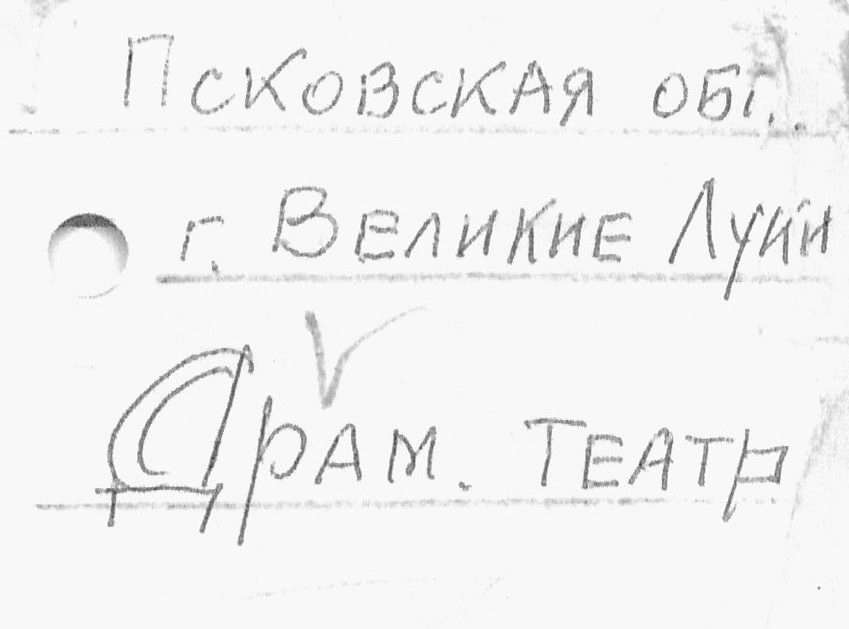 Псковская обл.
г. Великие Луки
Драм. театр